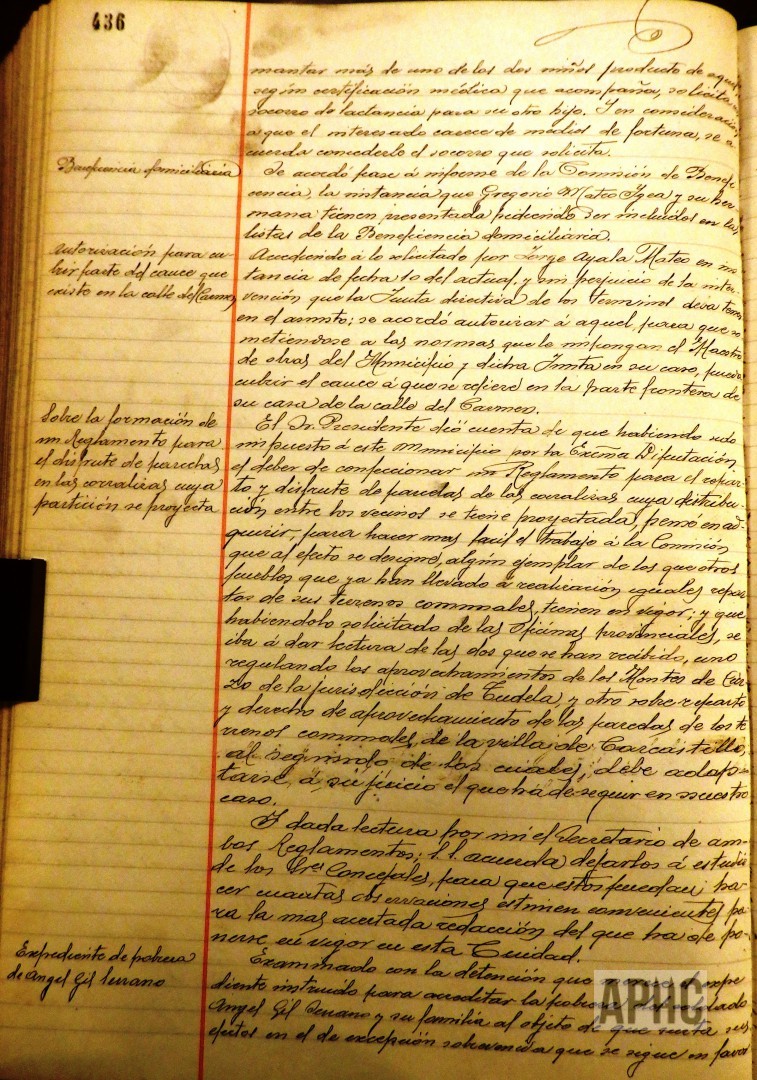 436
mantar más de uno de los dos niños producto de aquel
según certificación médica que acompaña, solicita
socorro de lactancia para su otro hijo. Y en consideración
a que el interesado carece de medios de fortuna, se a
cuerda concederle el socorro que solicita.
Beneficencia domiciliaria
Se acordó pase á informe de la Comisión de Benefi
cencia, la instancia que Gregorio Mateo Igea y su her
mana tienen presentada pidiendo ser incluidos en las
listas de la Beneficencia domiciliaria.
Autorización para cu-
brir parte del cauce que
existe en la calle del Carmen
Accediendo á lo solicitado por Jorge Ayala Mateo en ins
tancia de fecha 10 del actual, y sin perjuicio de la inter-
vención que la Junta directiva de los deva tener
en el asunto; se acordó autorizar á aquel, para que so
metiendose a las normas que le impongan el Maestro
de obras del Municipio y dicha Junta en su caso, pueda
cubrir el cauce á que se refiere en la parte frontera de
su casa de la calle del Carmen.
Sobre la formación de
un Reglamento para
el disfrute de parcelas
en las corralizas cuya
partición se proyecta
El Sr. Presidente dió cuenta de que habiendo sido
impuesto á este Municipio por la Excma Diputación,
el deber de confeccionar un Reglamento para el repar-
to y disfrute de parcelas de las corralizas cuya distribu-
ción entre los vecinos se tiene proyectada, pensó en ad-
quirir, para hacer mas facil el trabajo á la Comisión
que al efecto se designe, algún ejemplar de los que otros
pueblos que ya han llevado á realización iguales repar
tos de sus terrenos comunales, tienen en vigor; y que
habiendolo solicitado de las Oficinas provinciales, se
iba á dar lectura de las dos que se han recibido, uno
regulando los aprovechamientos de los Montes de Cier
zo de la jurisdicción de Tudela, y otro sobre reparto
y derecho de aprovechamiento de las parcelas de los te
rrenos comunales, de la villa de Carcastillo,
al segundo de los cuales, debe adap-
tarse, á su juicio el que há de seguir en nuestro
caso.
Y dada lectura por mí el Secretario de am-
bos Reglamentos; S.S. acuerda dejarlos á estudio
de los Sres Concejales, para que estos puedan ha-
cer cuantas observaciones estimen convenientes pa-
ra la mas acertada redacción del que ha de po-
nerse en vigor en esta Ciudad.
Expediente de pobreza
de Angel Gil Serrano
Examinado con la detención que expe
diente instruido para acreditar la pobreza
Angel Gil Serrano y su familia al objeto de que surta sus
efectos en el de excepción sobrevenida que se sigue en favor
APHC